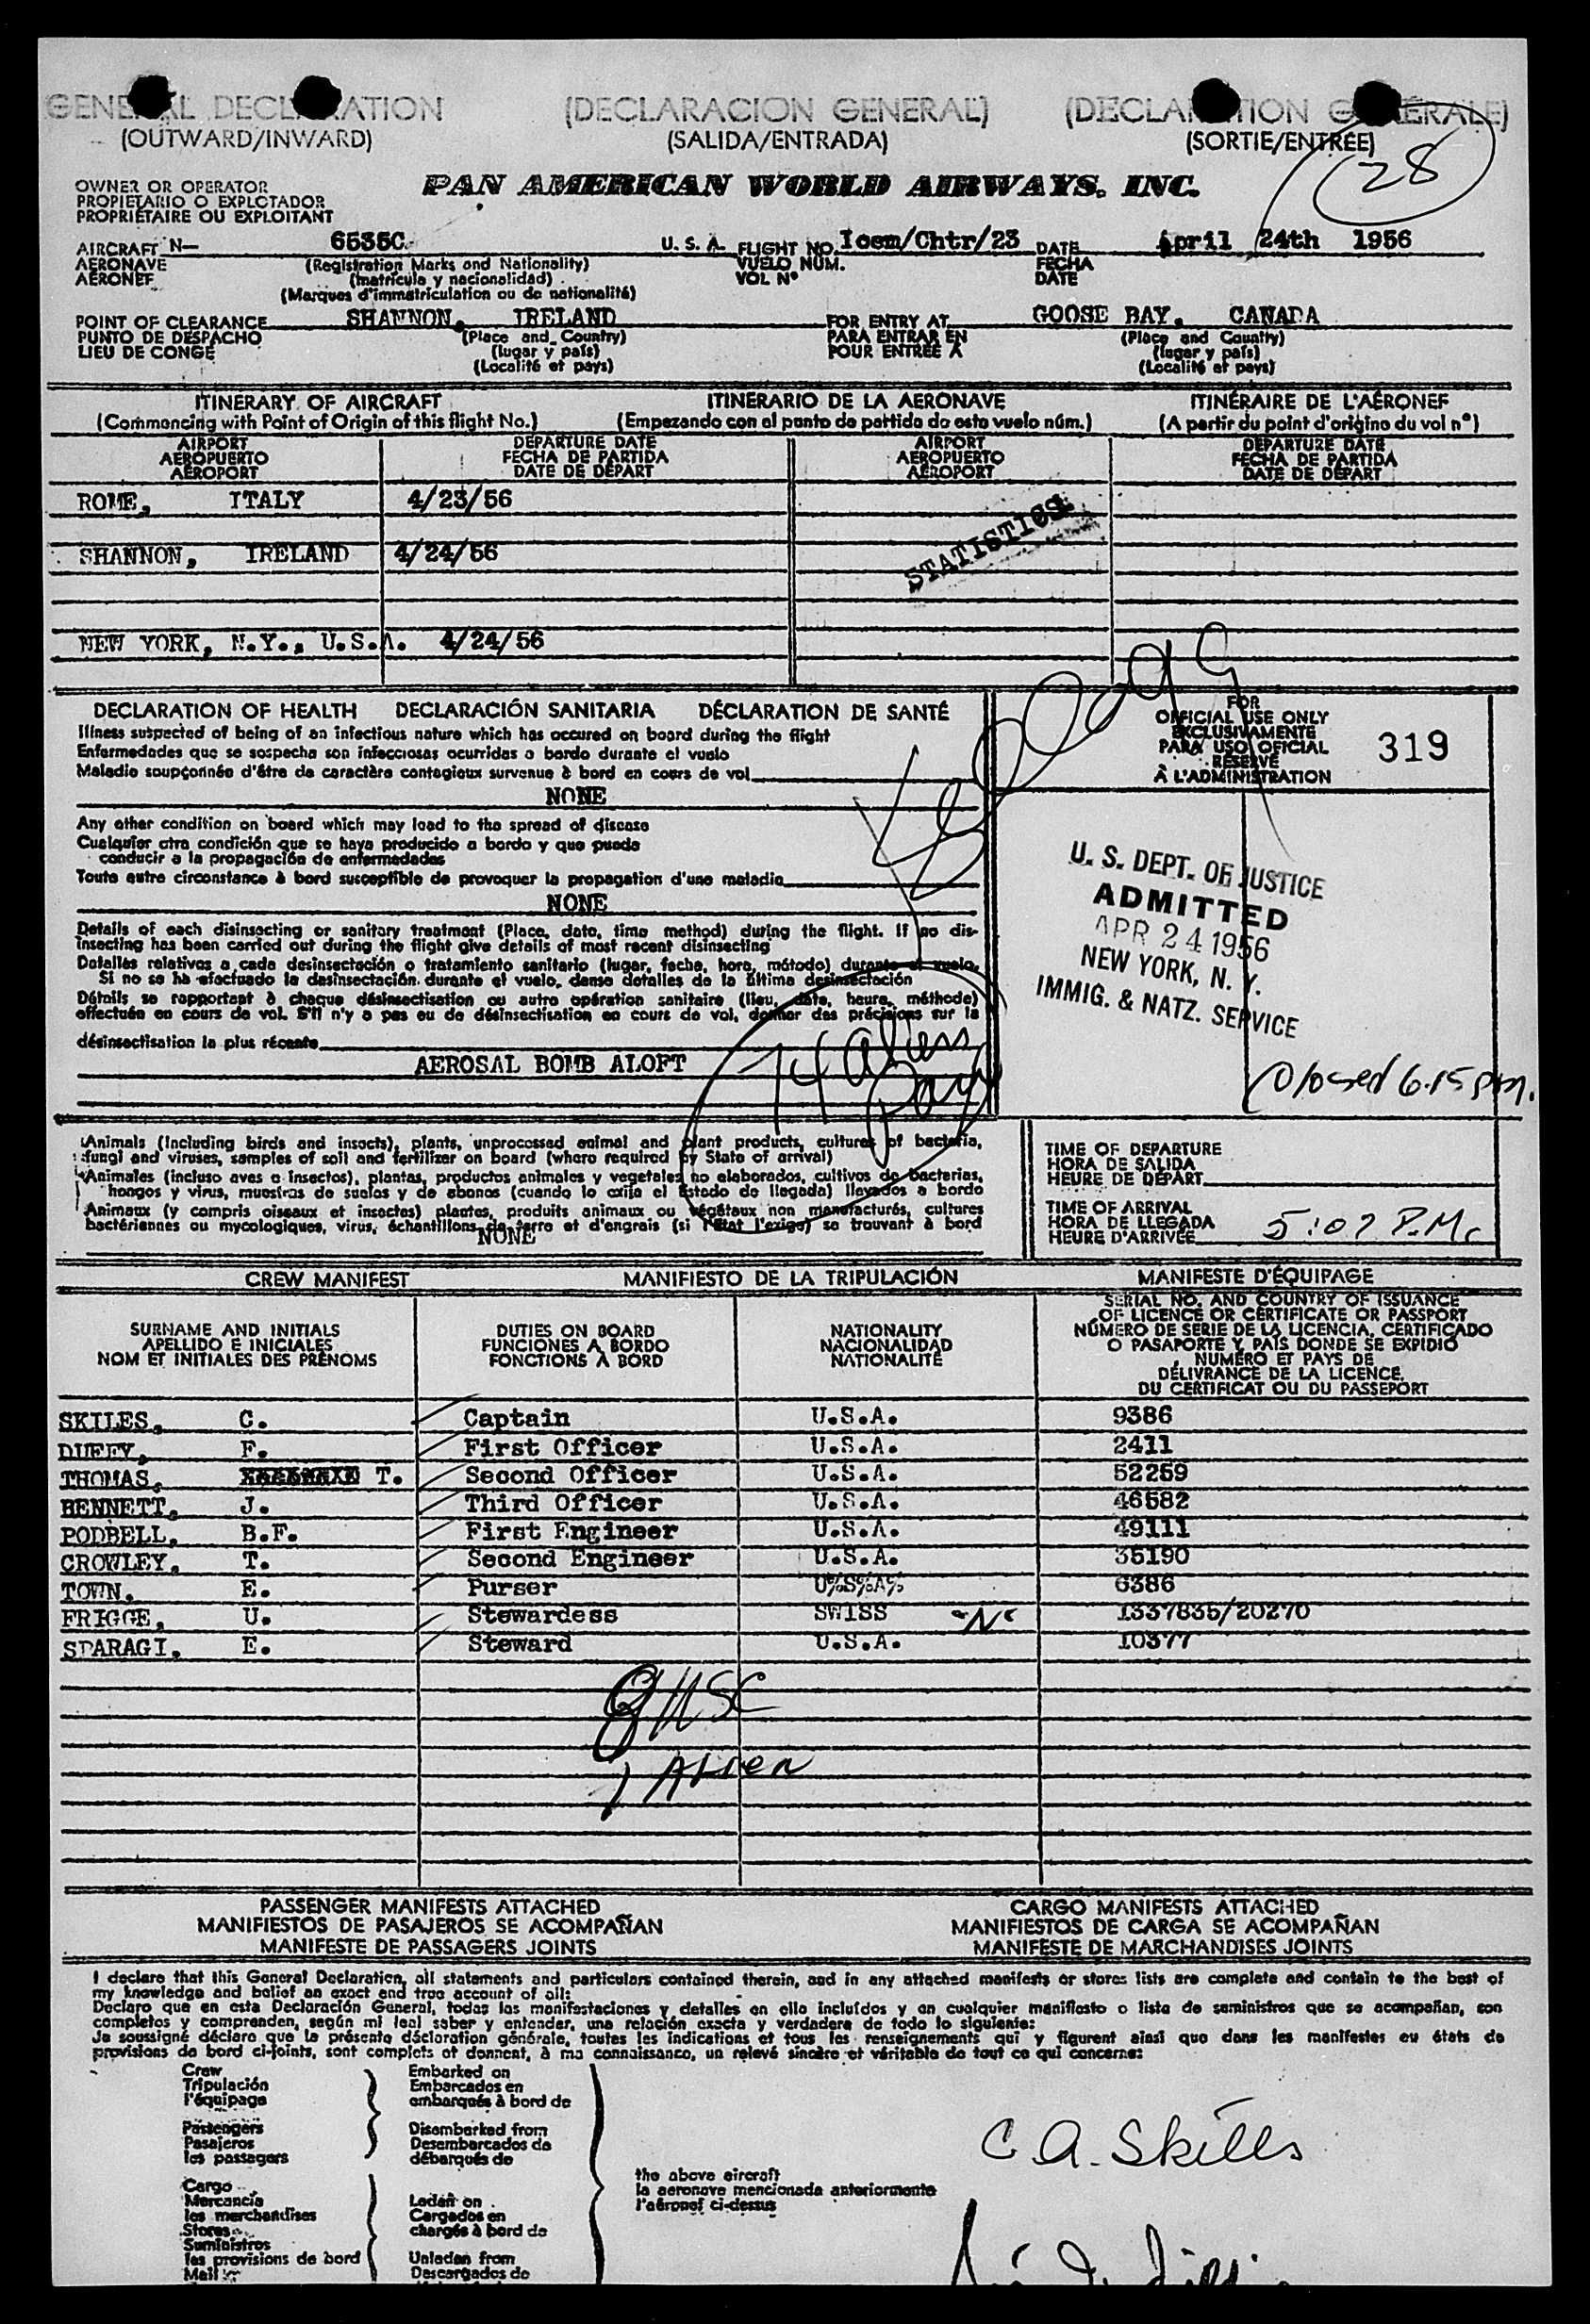 GENERAL DECLARATION (DECLARACION GENERAL) (DECLARATION GÉNÉRALE)
(OUTWARD/INWARD) (SALIDA/ENTRADA) (SORTIE/ENTRÉE)
28
OWNER OR OPERATOR
PROPIETARIO O EXPLOTADOR
PROPRIÉTAIRE OU EXPLOITANT
PAN AMERICAN WORLD AIRWAYS, INC.
AIRCRAFT N— 6535C U. S. A. FLIGHT NO. Icem/Chtr/23 DATE April 24th 1956
AERONAVE (Registration Marks and Nationality) VUELO NÚM. FECHA
AÉRONEF (matrícula y nacionalidad) VOL N° DATE
(Marques d'immatriculation ou de nationalité)
POINT OF CLEARANCE SHANNON, IRELAND FOR ENTRY AT GOOSE BAY, CANADA
PUNTO DE DESPACHO (Place and Country) PARA ENTRAR EN (Place and Country)
LIEU DE CONGÉ (lugar y país) POUR ENTRÉE À (lugar y país)
(Localité et pays) (Localité et pays)
ITINERARY OF AIRCRAFT ITINERARIO DE LA AERONAVE ITINÉRAIRE DE L'AÉRONEF
(Commencing with Point of Origin of this flight No.) (Empezando con el punto de partida de este vuelo núm.) (A partir du point d'origine du vol n°)
AIRPORT DEPARTURE DATE AIRPORT DEPARTURE DATE
AEROPUERTO FECHA DE PARTIDA AEROPUERTO FECHA DE PARTIDA
AÉROPORT DATE DE DÉPART AÉROPORT DATE DE DÉPART
ROME, ITALY 4/23/56
STATISTICS
SHANNON, IRELAND 4/24/56
NEW YORK, N.Y., U.S.A. 4/24/56
DECLARATION OF HEALTH DECLARACIÓN SANITARIA DÉCLARATION DE SANTÉ
Illness suspected of being of an infectious nature which has occured on board during the flight
Enfermedades que se sospecha son infecciosas ocurridas a bordo durante el vuelo
Maladie soupçonnée d'être de caractère contagieux survenue à bord en cours de vol
NONE
Any other condition on board which may lead to the spread of disease
Cualquier otra condición que se haya producido a bordo y que pueda
conducir a la propagación de enfermedades
Toute autre circonstance à bord susceptible de provoquer la propagation d'une maladie
NONE
Details of each disinsecting or sanitary treatment (Place, date, time method) during the flight. If no dis-
insecting has been carried out during the flight give details of most recent disinsecting
Detalles relativos a cada desinsectación o tratamiento sanitario (lugar, fecha, hora, método) durante el vuelo.
Si no se ha efectuado la desinsectación durante el vuelo, dense detalles de la última desinsectación
Détails se rapportant à chaque désinsectisation ou autre opération sanitaire (lieu, date, heure, méthode)
effectuée en cours de vol. S'il n'y a pas eu de désinsectisation en cours de vol, donner des précisions sur la
désinsectisation la plus récente
AEROSAL BOMB ALOFT
FOR
OFFICIAL USE ONLY
EXCLUSIVAMENTE
PARA USO OFICIAL
RÉSERVÉ
À L'ADMINISTRATION
319
U. S. DEPT. OF JUSTICE
ADMITTED
APR 24 1956
NEW YORK, N. Y.
IMMIG. & NATZ. SERVICE
Closed 6.15 pm.
Animals (including birds and insects), plants, unprocessed animal and plant products, cultures of bacteria,
fungi and viruses, samples of soil and fertilizer on board (where required by State of arrival)
Animales (incluso aves e insectos), plantas, productos animales y vegetales no elaborados, cultivos de bacterias,
hongos y virus, muestras de suelos y de abonos (cuando lo exija el Estado de llegada) llevados a bordo
Animaux (y compris oiseaux et insectes) plantes, produits animaux ou végétaux non manufacturés, cultures
bactériennes ou mycologiques, virus, échantillons de terre et d'engrais (si l'État l'exige) se trouvant à bord
NONE
TIME OF DEPARTURE
HORA DE SALIDA
HEURE DE DÉPART
TIME OF ARRIVAL
HORA DE LLEGADA
HEURE D'ARRIVÉE 5:07 P.M.
CREW MANIFEST MANIFIESTO DE LA TRIPULACIÓN MANIFESTE D'ÉQUIPAGE
SURNAME AND INITIALS
APELLIDO E INICIALES
NOM ET INITIALES DES PRÉNOMS
DUTIES ON BOARD
FUNCIONES A BORDO
FONCTIONS À BORD
NATIONALITY
NACIONALIDAD
NATIONALITÉ
SERIAL NO. AND COUNTRY OF ISSUANCE
OF LICENCE OR CERTIFICATE OR PASSPORT
NÚMERO DE SERIE DE LA LICENCIA, CERTIFICADO
O PASAPORTE Y PAÍS DONDE SE EXPIDIÓ
NUMÉRO ET PAYS DE
DÉLIVRANCE DE LA LICENCE,
DU CERTIFICAT OU DU PASSEPORT
SKILES, C. Captain U.S.A. 9386
DUFFY, F. First Officer U.S.A. 2411
THOMAS, T. Second Officer U.S.A. 52259
BENNETT, J. Third Officer U.S.A. 46582
PODBELL, B.F. First Engineer U.S.A. 49111
CROWLEY, T. Second Engineer U.S.A. 35190
TOWN, E. Purser U%S%A% 6386
FRIGGE, U. Stewardess SWISS "N" 1337835/20270
SPARAGI, E. Steward U.S.A. 10377
8 USC
1 Alien
PASSENGER MANIFESTS ATTACHED CARGO MANIFESTS ATTACHED
MANIFIESTOS DE PASAJEROS SE ACOMPAÑAN MANIFIESTOS DE CARGA SE ACOMPAÑAN
MANIFESTE DE PASSAGERS JOINTS MANIFESTE DE MARCHANDISES JOINTS
I declare that this General Declaration, all statements and particulars contained therein, and in any attached manifests or stores lists are complete and contain to the best of
my knowledge and belief an exact and true account of all:
Declaro que en esta Declaración General, todas las manifestaciones y detalles en ella incluídos y en cualquier manifiesto o lista de suministros que se acompañan, son
completos y comprenden, según mi leal saber y entender, una relación exacta y verdadera de todo lo siguiente:
Je soussigné déclare que la présente déclaration générale, toutes les indications et tous les renseignements qui y figurent ainsi que dans les manifestes ou états de
provisions de bord ci-joints, sont complets et donnent, à ma connaissance, un relevé sincère et véritable de tout ce qui concerne:
Crew
Tripulación
l'équipage
Passengers
Pasajeros
les passagers
Cargo
Mercancía
les marchandises
Stores
Suministros
les provisions de bord
Mail
Embarked on
Embarcados en
embarqués à bord de
Disembarked from
Desembarcados de
débarqués de
Laden on
Cargados en
chargés à bord de
Unladen from
Descargados de
the above aircraft
la aeronave mencionada anteriormente
l'aéronef ci-dessus
C A. Skiles